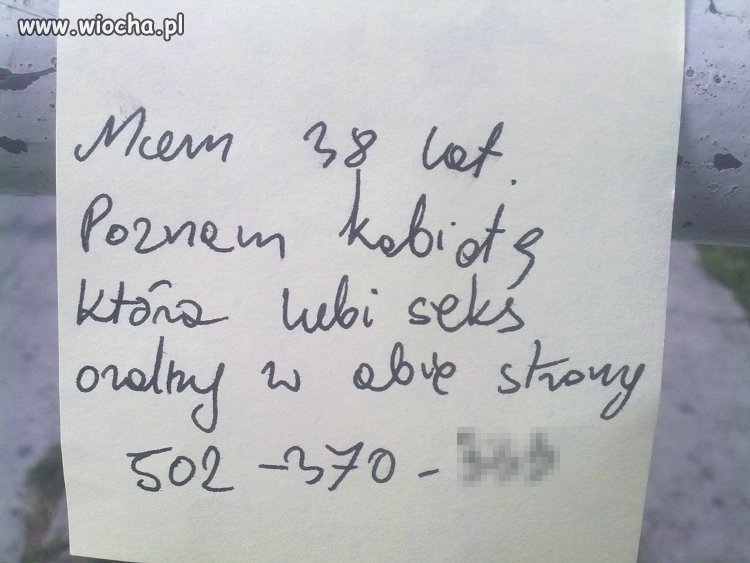 www.wiocha.pl
Mam 38 lat.
Poznam kobiotę
która lubi seks
oralny w obie strony
502-370-